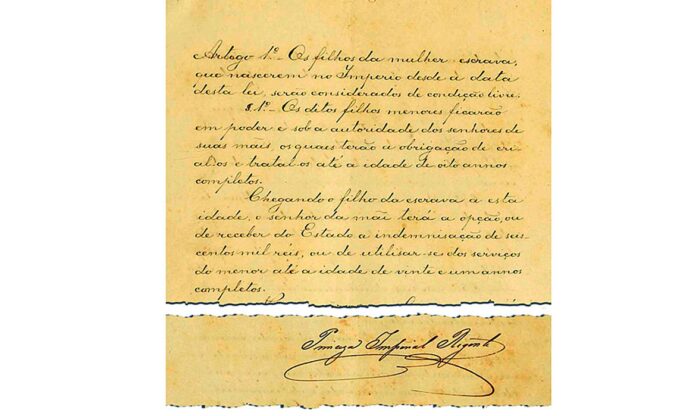 Artigo 1º - Os filhos da mulher escrava,
que nascerem no Imperio desde a data
desta lei, serão considerados de condição livre.
§.1º - Os ditos filhos menores ficarão
em poder e sob a autoridade dos senhores de
suas mãis, os quais terão a obrigação de cri-
al-os e tratal-os até a idade de oito annos
completos.
Chegando o filho da escrava a esta
idade, o senhor da mãi terá a opção, ou
de receber do Estado a indemnisação de seis-
centos mil réis, ou de utilisar-se dos serviços
do menor até a idade de vinte e um annos
completos.
Princeza Imperial Regente